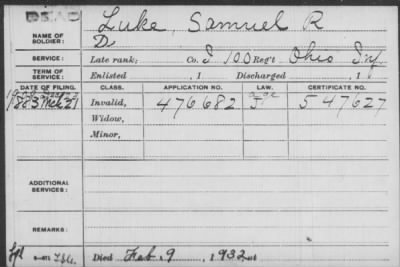 DEAD
NAME OF SOLDIER: Luke, Samuel R
D
SERVICE: Late rank, Co. I 100 Reg't Ohio Inf.
TERM OF SERVICE: Enlisted , 1 Discharged , 1
DATE OF FILING. CLASS. APPLICATION NO. LAW. CERTIFICATE NO.
1883 Mch 21 Invalid, 476682 J 547627
Widow,
Minor,
ADDITIONAL SERVICES:
REMARKS:
Died Feb. 9, 1932 at